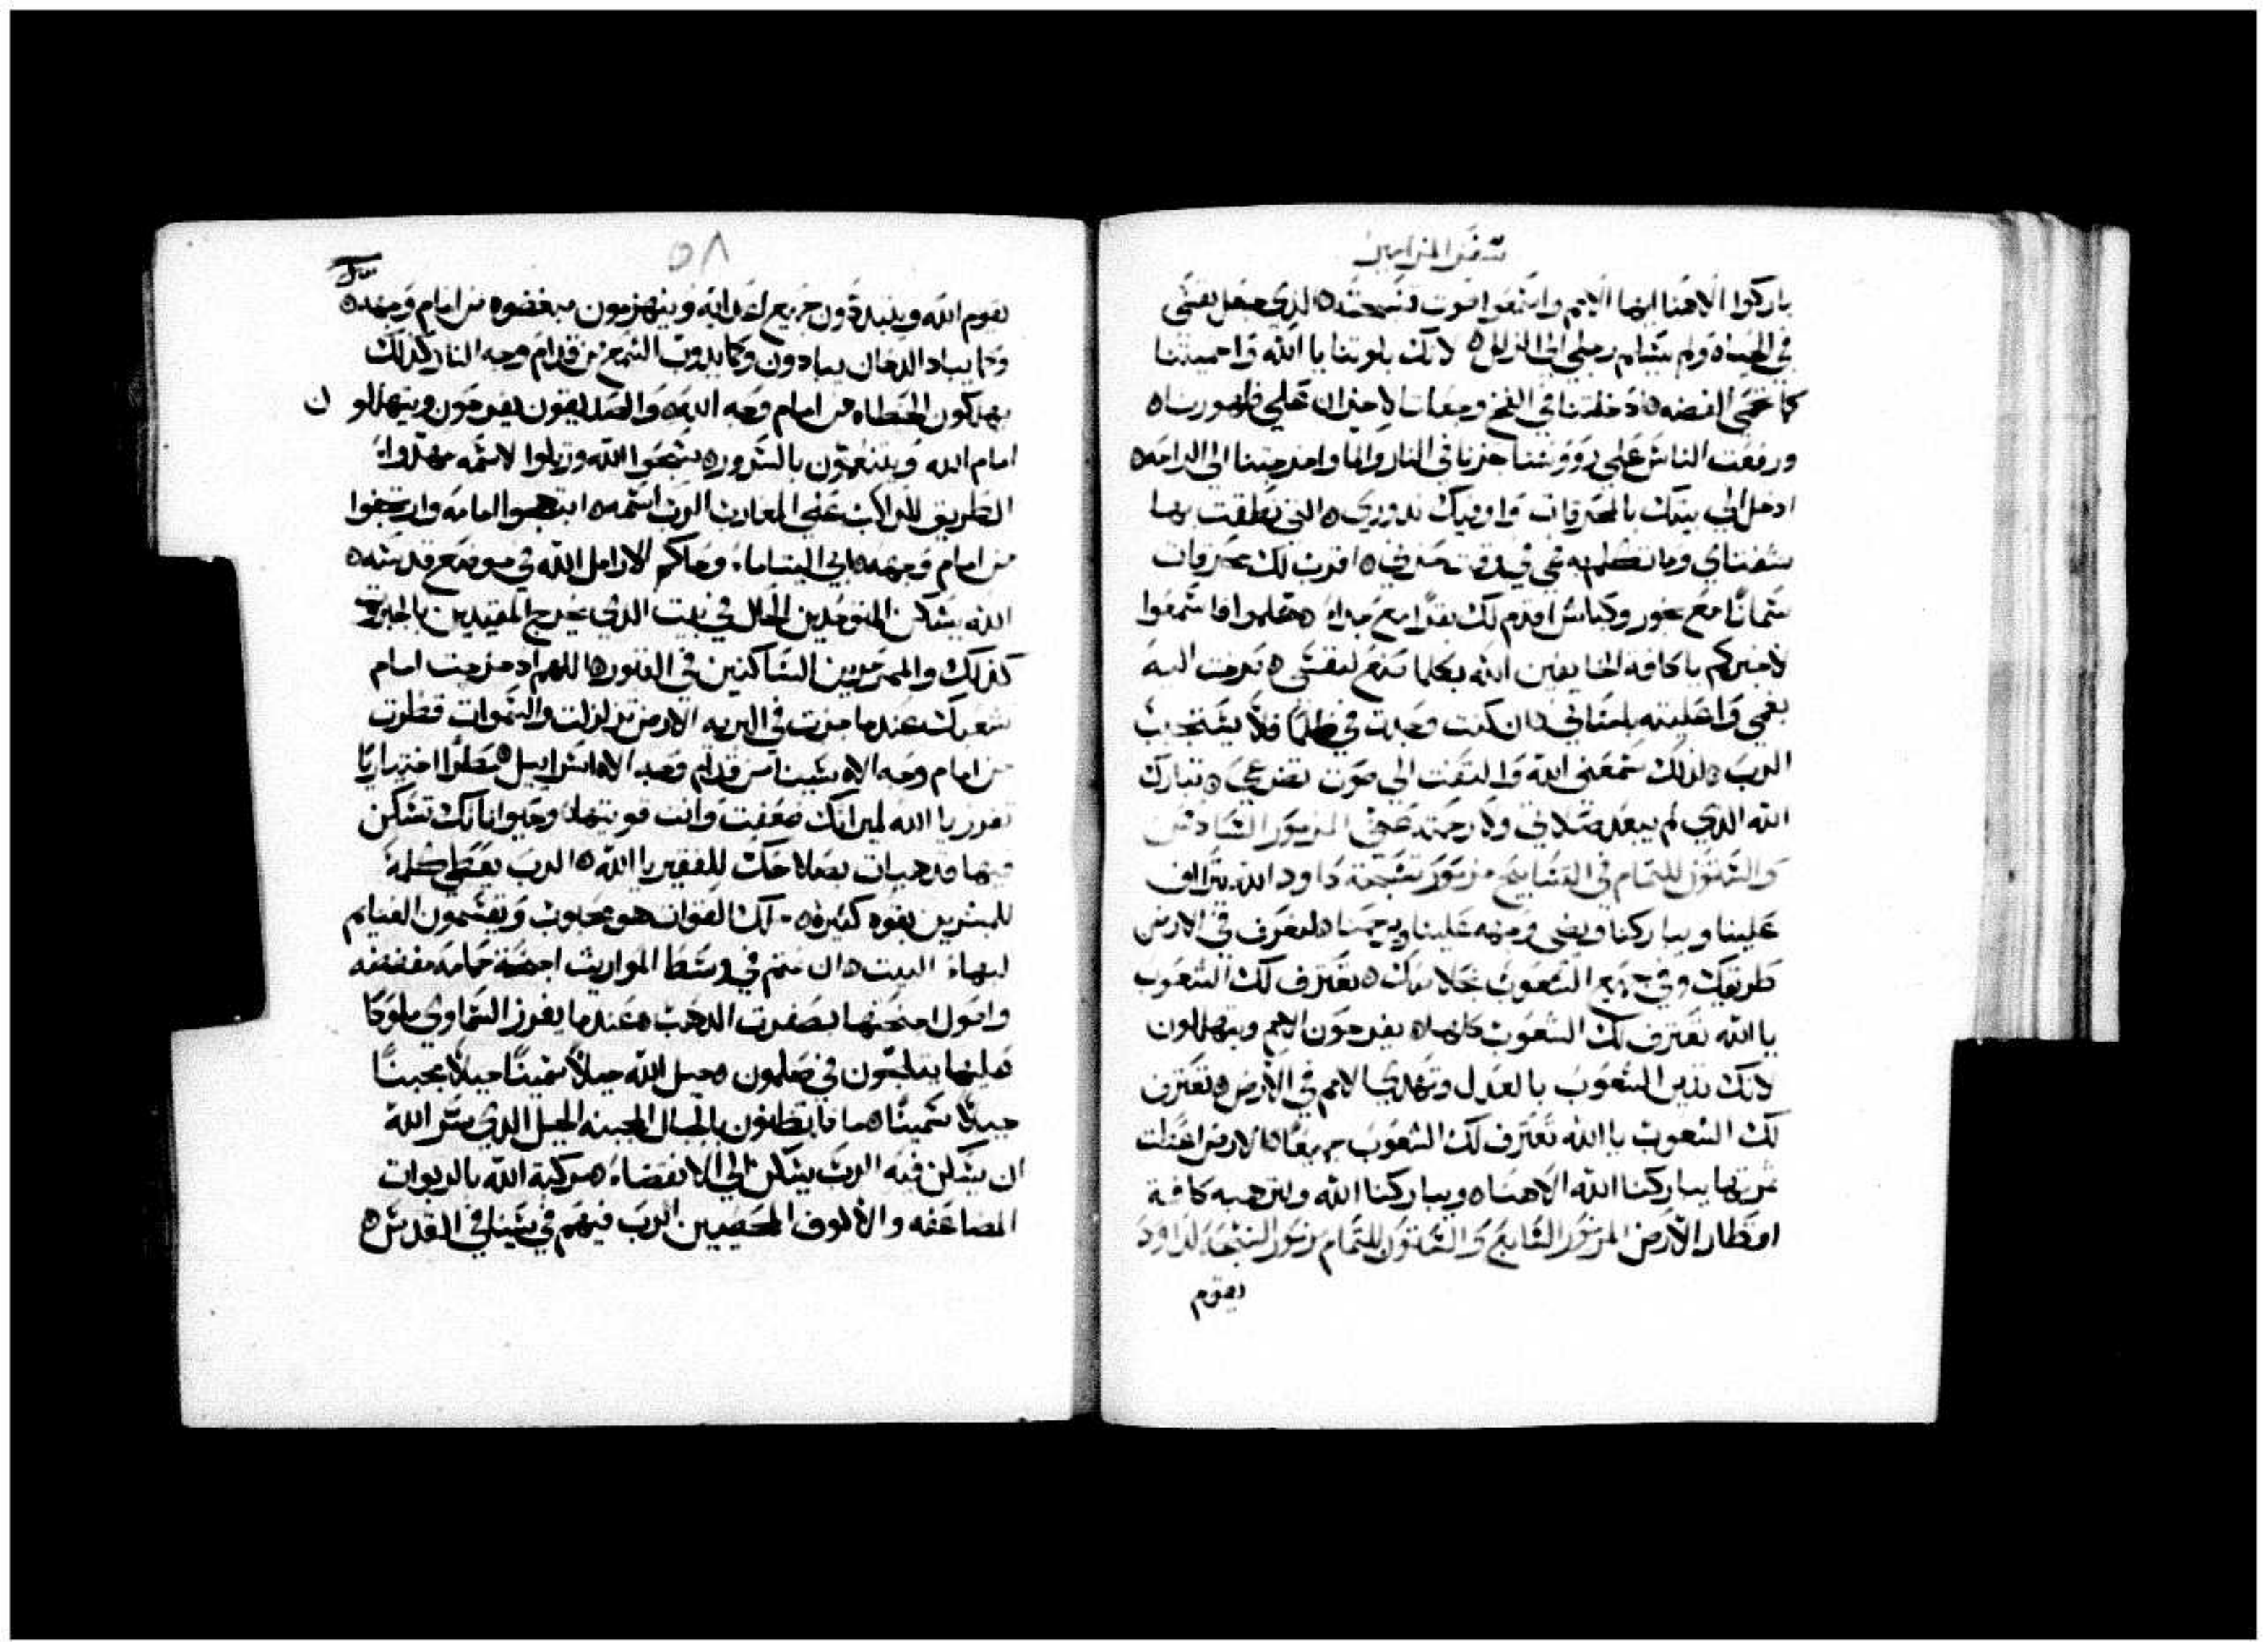 سفر المزامير
باركوا الاهنا ايها الامم واسمعوا صوت تسبحته ه الذي جعل نفسي
في الحياه ولم يسلم رجلي الى الزلل ه لانك بلوتنا يا الله واحميتنا
كما تحمى الفضه ه ادخلتنا في الفخ وجعلت الاحزان على ظهورنا ه
ورفعت الناس على رووسنا جزنا في النار والما واخرجتنا الى الراحه ه
ادخل الى بيتك بالمحرقات واوفيك ندوري ه التي نطقت بها
شفتاي وما تكلم به فمي في وقت حزني ه اقرب لك محرقات
سمانا مع بخور وكباش اقدم لك بقرا مع جداء ه هلموا فاسمعوا
لاخبركم يا كافة الخايفين الله بكلما صنع لنفسي ه صرخت اليه
بفمي واعليته بلساني ه ان كنت وجدت في ظلما فلا يستجيب
الرب ه لذلك سمعني الله والتفت الى صوت تضرعي ه تبارك
الله الذي لم يبعد صلاتي ولا رحمته عني المزمور السادس
والستون للتمام في التسابيح مزمور تسبحة داود الله يتراف
علينا ويباركنا ويضي وجهه علينا ويرحمنا ه لنعرف في الارض
طريقك وفي جميع الشعوب خلاصك ه تعترف لك الشعوب
يا الله تعترف لك الشعوب كلها ه يفرحون الامم ويتهللون
لانك تدين الشعوب بالعدل وتهدي الامم في الارض ه تعترف
لك الشعوب يا الله تعترف لك الشعوب جميعا ه الارض اعطت
ثمرتها يباركنا الله الاهنا ه ويباركنا الله ولترهبه كافة
اقطار الارض المزمور السابع والستون للتمام مزمور التسبحه لداود
يقوم
٥٨
يقوم الله ويتبددون جميع اعدايه وينهزمون مبغضوه من امام وجهه ه
وكما يباد الدخان يبادون وكما يدوب الشمع من قدام وجه النار كذلك
يهلكون الخطاه من امام وجه الله ه والصديقون يفرحون ويتهللو ن
امام الله ويتنعمون بالسرور ه سبحوا الله ورتلوا لاسمه مهدوا
الطريق للراكب على المغارب الرب اسمه ه ابتهجوا امامه وارتجفوا
من امام وجهه ه ابي اليتاما وحاكم الارامل الله في موضع قدسه ه
الله يسكن المتوحدين الحال في بيت الذي يخرج المقيدين بالجبروت
كذلك والممرمرين الساكنين في القبور ه اللهم اد خرجت امام
شعبك عندما جزت في البريه الارض تزلزلت والسموات قطرت
من امام وجه الاه سينا من قدام وجه الاه اسراييل ه مطرا اختياريا
تفرز يا الله لميراتك ضعفت وانت قويتها ه وحيواناتك تسكن
فيها قد هيات بصلاحك للفقير يا الله ه الرب يعطي كلمة
للمبشرين بقوه كثيره ه ملك القوات هو محبوب ويقسمون الغنايم
لبهاء البيت ه ان نمتم في وسط المواريث اجنحة حمامه مفضضه
واصول اجنحتها بصفرت الدهب ه عندما يفرز السماوي ملوكا
عليها يتلجون في صلمون ه جبل الله جبلا سمينا جبلا مجبنا
جبلا سمينا ه ما بالكم تظنون بالجبال المجبنه الجبل الذي سر الله
ان يسكن فيه الرب يسكن الى الانقضاء ه مركبة الله بالربوات
المضاعفه والالوف المخصبين الرب فيهم في سينا في القدس ه